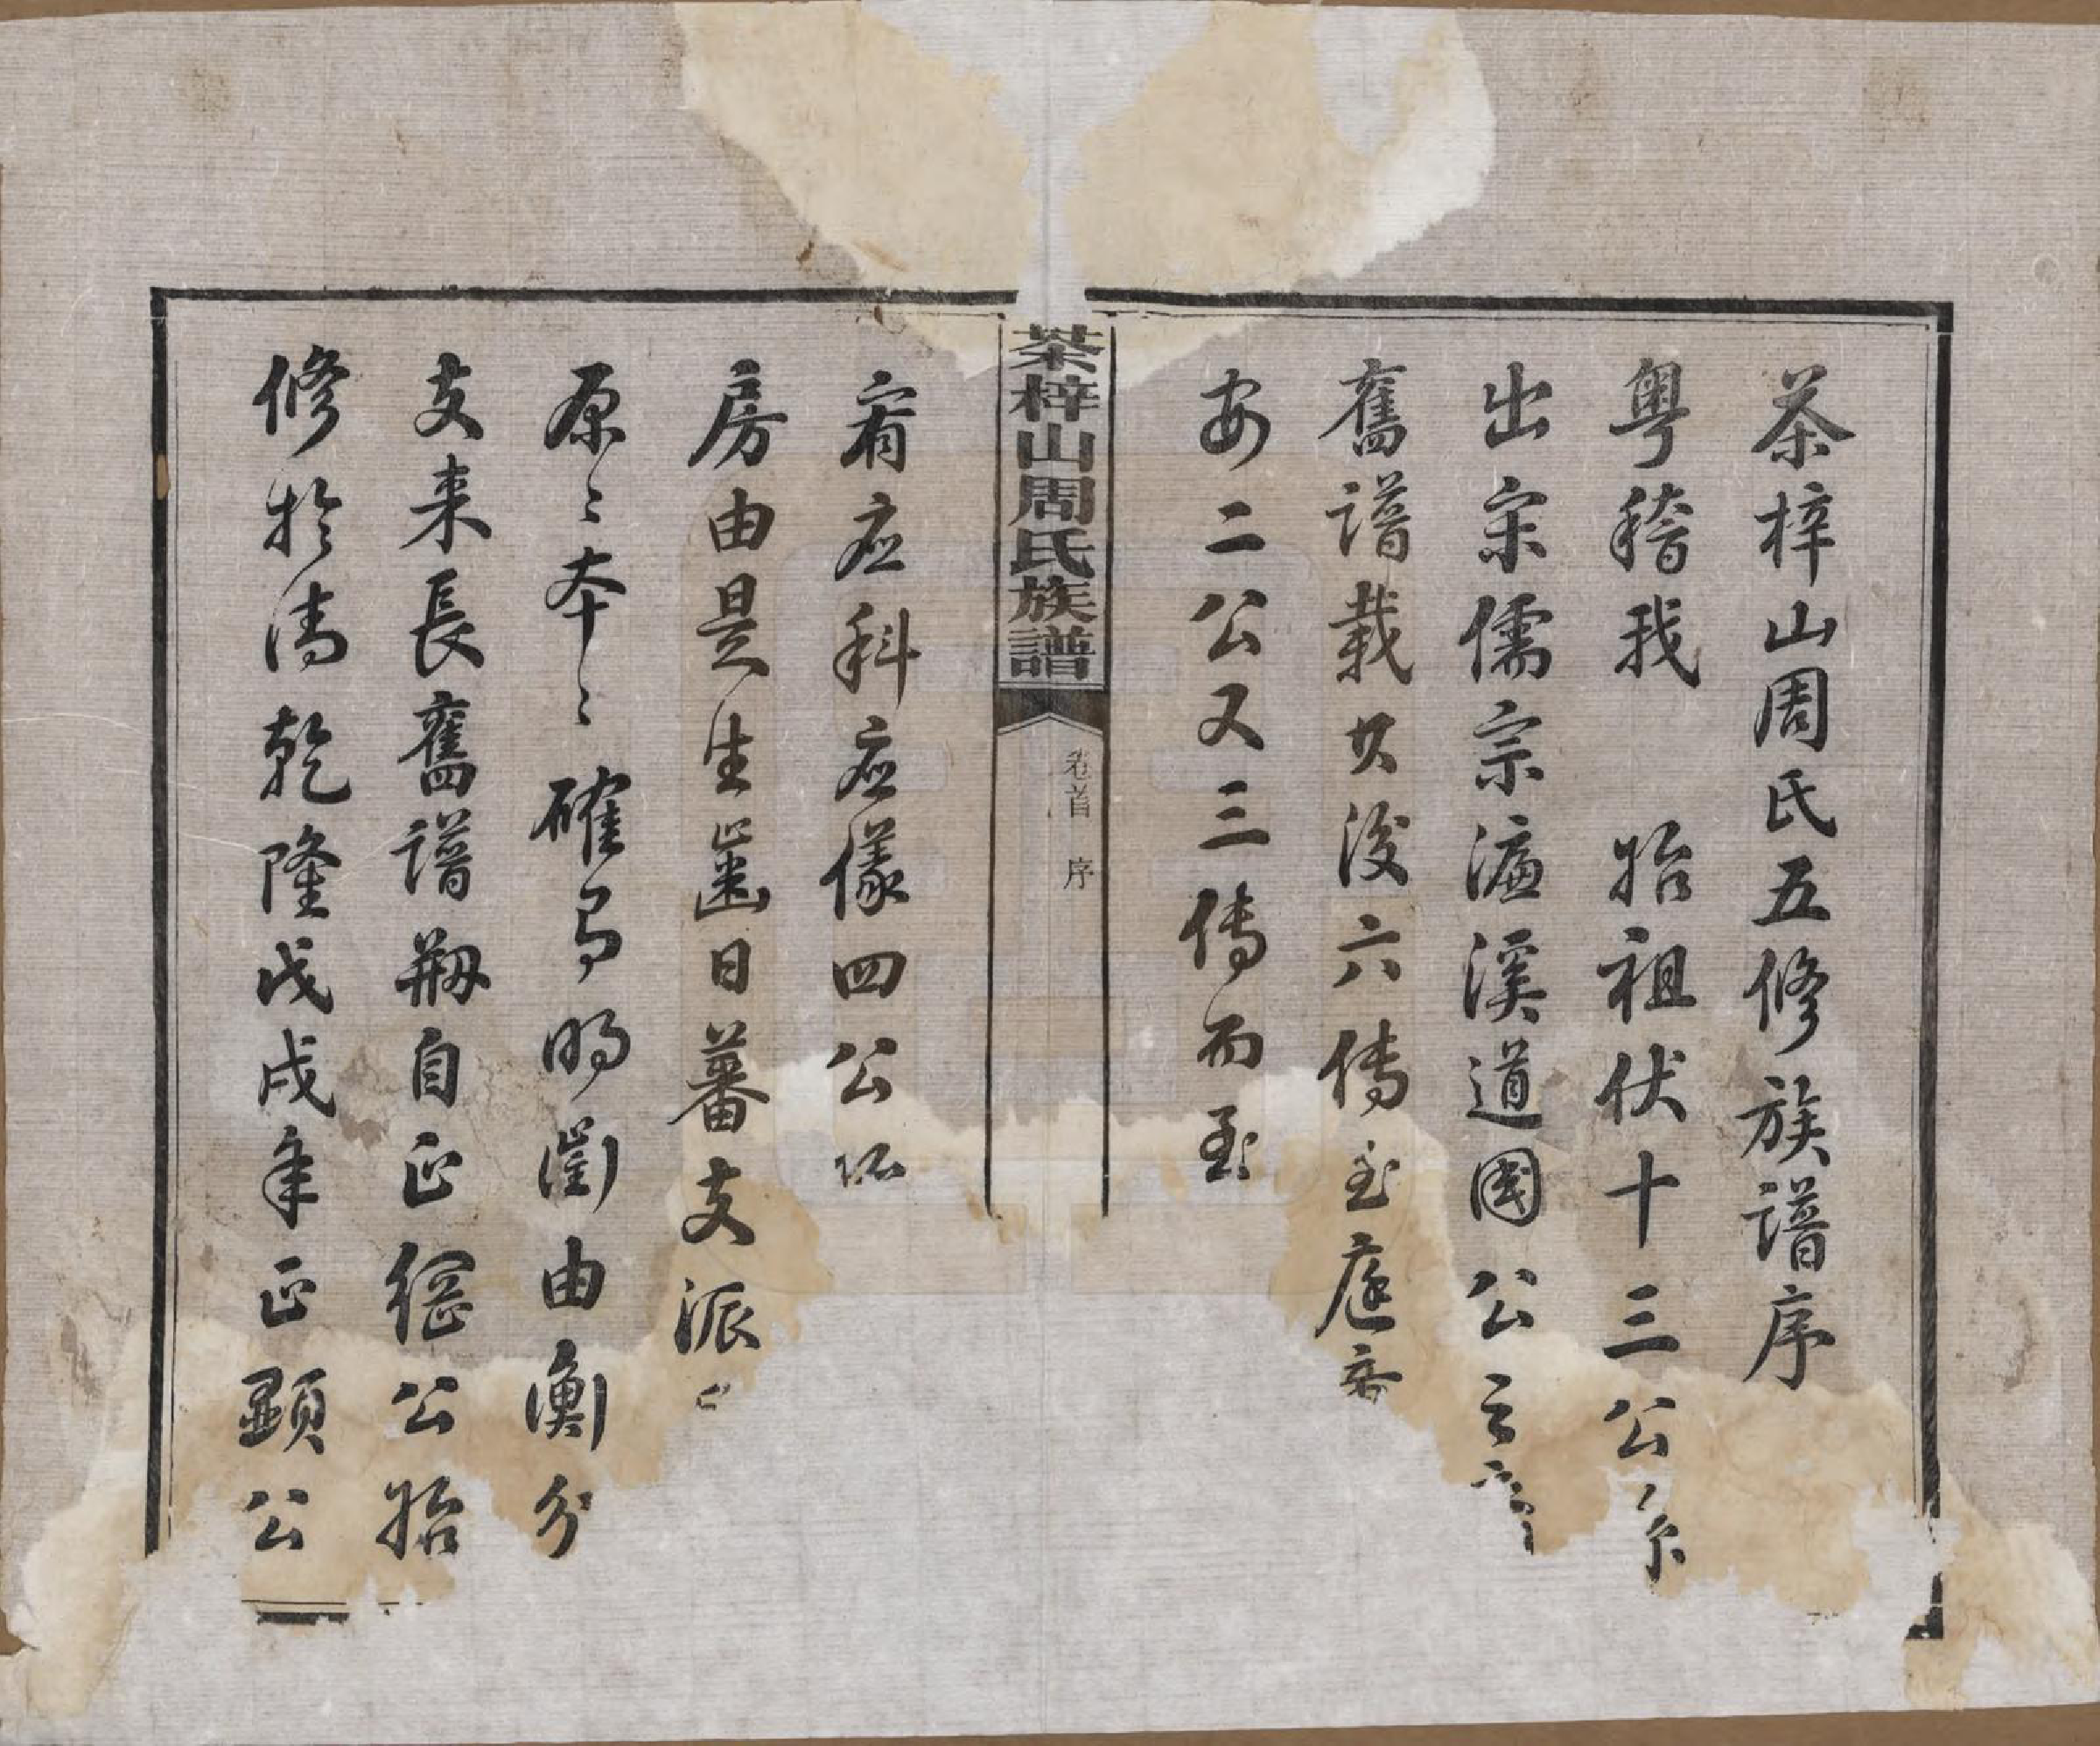 茶梓山周氏五修族譜序
粤稽我 始祖伏十三公系
出宋儒宗濂溪道國公之
舊譜載廿後六傳至庭
安二公又三傳而至
茶梓山周氏族譜
卷首 序
宥应科应儀四公
房由是生齒日蕃支派
原〻本〻確為明衡由衡分
支来長舊譜刱自正綱公始
修於清乾隆戊戌年正顕公